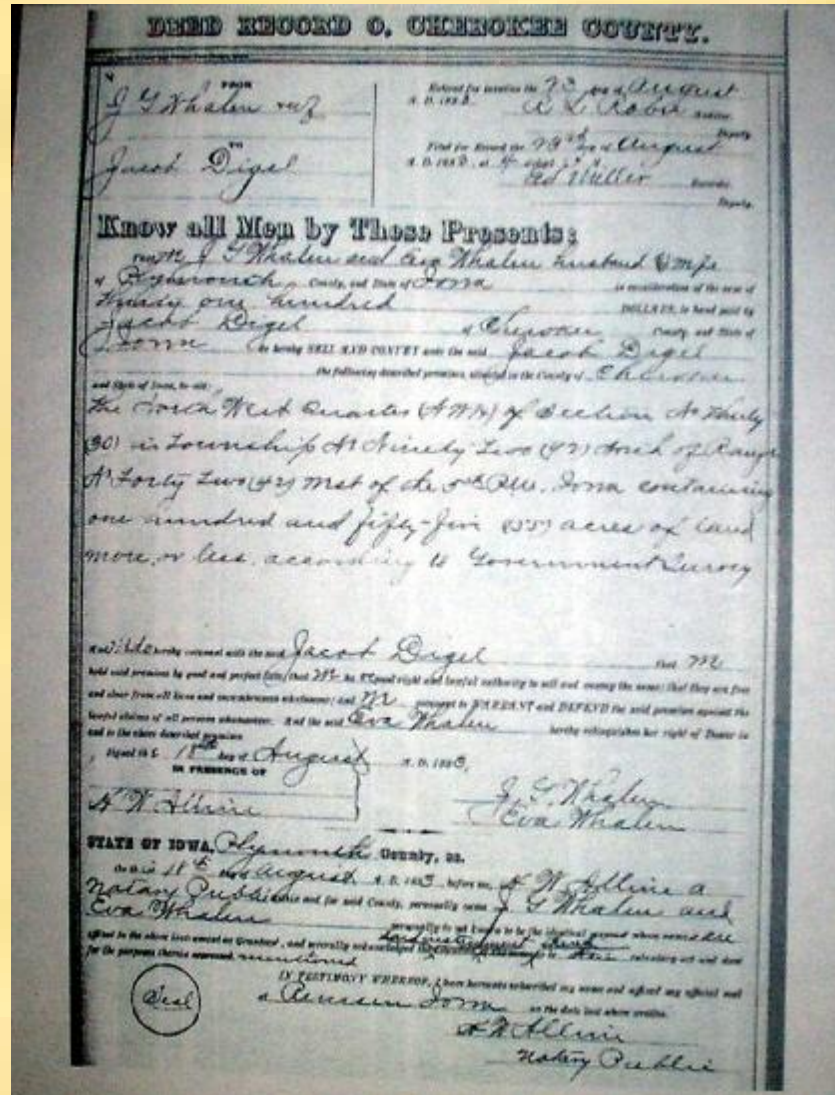 DEED RECORD O, CHEROKEE COUNTY.
FROM
J G Whalen
TO
Jacob Digel
Entered for taxation the 23 day of August
A. D. 1883.
Filed for Record the 23rd day of August
A. D. 1883, at 4
Ed Miller Recorder
Deputy.
Know all Men by These Presents:
J G Whalen and Eva Whalen husband & wife
of Plymouth County, and State of Iowa in consideration of the sum of
one hundred DOLLARS, in hand paid by
Jacob Digel of County, and State of
Iowa do hereby SELL AND CONVEY unto the said Jacob Digel
the following described premises, situated in the County of
and State of Iowa, to-wit:
The North West Quarter of Section No Thirty
(30) in Township No Ninety Two (92) North of Range
No Forty Two (42) West of the 5th P.M. Iowa containing
one hundred and fifty-five (155) acres of land
more, or less, according to Government Survey
hereby covenant with the said Jacob Digel that
hold said premises by good and perfect title; that good right and lawful authority to sell and convey the same; that they are free
and clear from all liens and encumbrances whatsoever; and covenant to WARRANT and DEFEND the said premises against the
lawful claims of all persons whomsoever. And the said Eva Whalen hereby relinquishes her right of Dower in
and to the above described premises
Signed the 18th day of August A. D. 1883,
IN PRESENCE OF
J. G. Whalen
Eva Whalen
STATE OF IOWA, Plymouth County, ss.
18th day of August A. D. 1883, before me, a
Notary Public in and for said County, personally came J G Whalen and
Eva Whalen personally to me known to be the identical persons whose names are
affixed to the above instrument as Grantors, and severally acknowledged voluntary act and deed
for the purposes therein expressed. mentioned
IN TESTIMONY WHEREOF, I have hereunto subscribed my name and affixed my official seal
Seal
at Remsen Iowa on the date last above written.
Notary Public